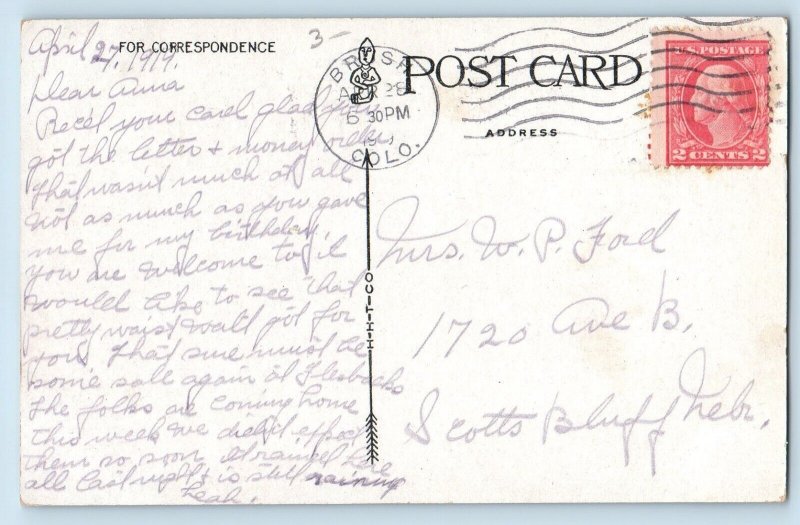 April 27, 1919.
FOR CORRESPONDENCE
3-
Dear Anna
Recd your card glad you
got the letter & money order
That wasn't much at all
not as much as you gave
me for my birthday,
you are welcome to it
would like to see that
pretty waist Walt got for
you. That sure must be
some sale again at
The folks are coming home
this week we didn't expect
them so soon It rained here
all last night & is still raining
Leah.
BRUSH
APR 28
6 30 PM
COLO.
H-H-T-CO
POST CARD
ADDRESS
U.S. POSTAGE
2 CENTS 2
Mrs. W. P. Ford
1720 Ave B.
Scotts Bluff Nebr.